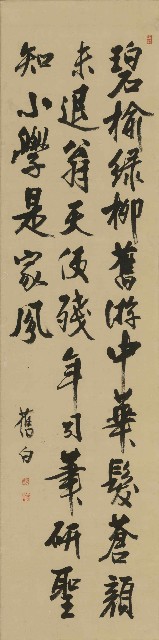 碧榆綠柳舊游中華髮蒼顏
未退翁天使殘年司筆研聖
知小學是家風
舊白